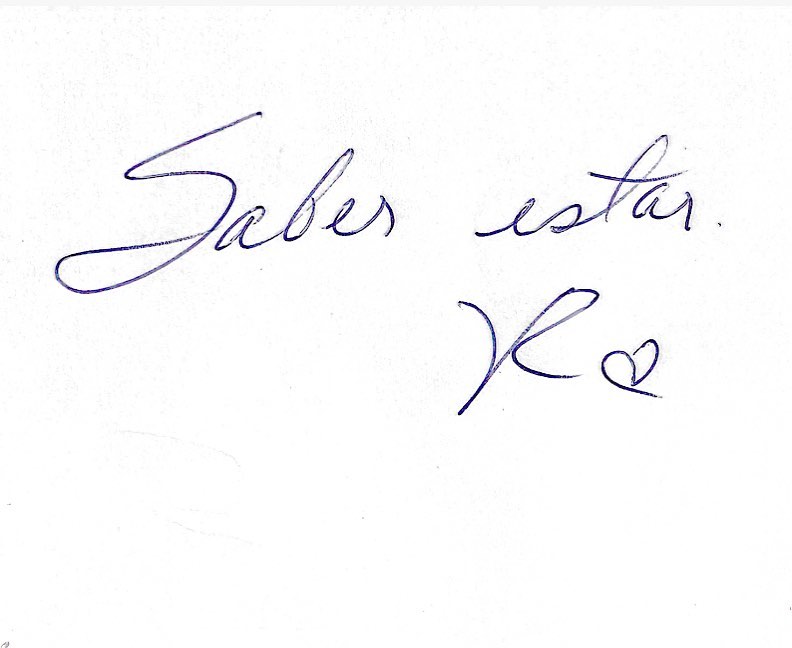 Saber estar.
R♡